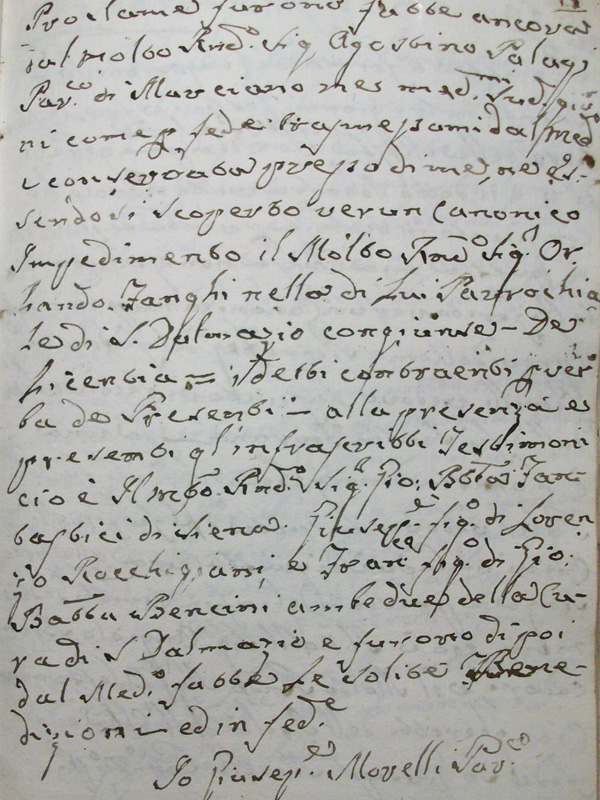 Proclame furono fatte ancora
dal Molto Rnd.º Sig Agostino Palag
Par.co di Marciano nes med.
ni come p fede trasmessami dal Med
e conservata presso di me, ne es-
sendosi scoperto verun Canonico
Impedimento il Molto Rnd.º Sig.r Or
lando Zanghi nella di Lui Parrochia
le di S. Dalmazio congiunse - De
Licentia = i detti contraenti p ver
ba de Presenti = alla presenza e
presenti gl'infrascritti Testimoni
cioè Il mto Rnd.º Sig.r Gio: Btta Fan
tastici di Siena. Giusep.e fig.º di Loren
zo Rocchigiani, e Fran.co fig.º di Gio:
Batta Bencini ambedue della Cu-
ra di S Dalmazio e furono di poi
dal Med.º fatte le solite Bene-
dizioni ed in fed.e
Io Giusep.e Morelli Par.co